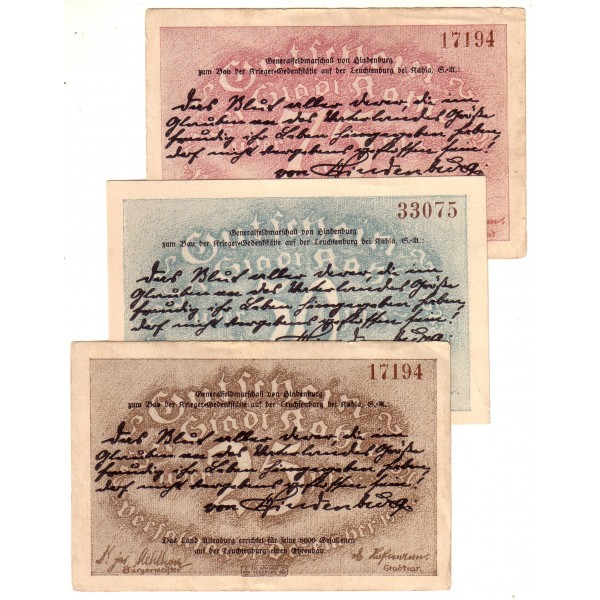 17194
Generalfeldmarschall von Hindenburg
zum Bau der Krieger-Gedenkstätte auf der Leuchtenburg bei Kahla, S.-A.:
Das Blut aller derer, die im
Glauben an des Vaterlandes Größe
freudig ihr Leben hingegeben haben,
darf nicht vergebens geflossen sein!
von Hindenburg
33075
Generalfeldmarschall von Hindenburg
zum Bau der Krieger-Gedenkstätte auf der Leuchtenburg bei Kahla, S.-A.:
Das Blut aller derer, die im
Glauben an des Vaterlandes Größe
freudig ihr Leben hingegeben haben,
darf nicht vergebens geflossen sein!
17194
Generalfeldmarschall von Hindenburg
zum Bau der Krieger-Gedenkstätte auf der Leuchtenburg bei Kahla, S.-A.:
Gutschein
Stadt Kahla
Das Blut aller derer, die im
Glauben an des Vaterlandes Größe
freudig ihr Leben hingegeben haben,
darf nicht vergebens geflossen sein!
von Hindenburg
25
Das Land Altenburg errichtet für seine 6600 Gefallenen
auf der Leuchtenburg einen Ehrenbau.
Bürgermeister